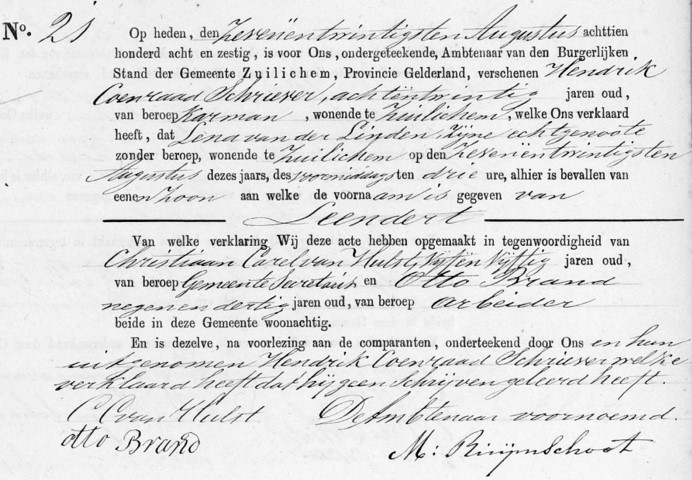 No. 21 Op heden, den zevenëntwintigsten Augustus achttien
honderd acht en zestig, is voor Ons, ondergeteekende, Ambtenaar van den Burgerlijken
Stand der Gemeente Zuilichem, Provincie Gelderland, verschenen Hendrik
Coenraad Schriever, achtëntwintig jaren oud,
van beroep Karman, wonende te Zuilichem, welke Ons verklaard
heeft, dat Lena van der Linden, Zijne echtgenoote
zonder beroep, wonende te Zuilichem op den zevenëntwintigsten
Augustus dezes jaars, des voormiddags ten drie ure, alhier is bevallen van
eenen Zoon aan welke de voornaam is gegeven van
Leendert
Van welke verklaring Wij deze acte hebben opgemaakt in tegenwoordigheid van
Christiaan Carel van Hulst, Vijf en Vijftig jaren oud,
van beroep Gemeente Secretaris en Otto Brand
negen en dertig jaren oud, van beroep arbeider
beide in deze Gemeente woonachtig.
En is dezelve, na voorlezing aan de comparanten, onderteekend door Ons en hun
uitgenomen Hendrik Coenraad Schriever welke
verklaard heeft dat hij geen Schrijven geleerd heeft.
C C van Hulst De Ambtenaar voornoemd.
otto Brand M: